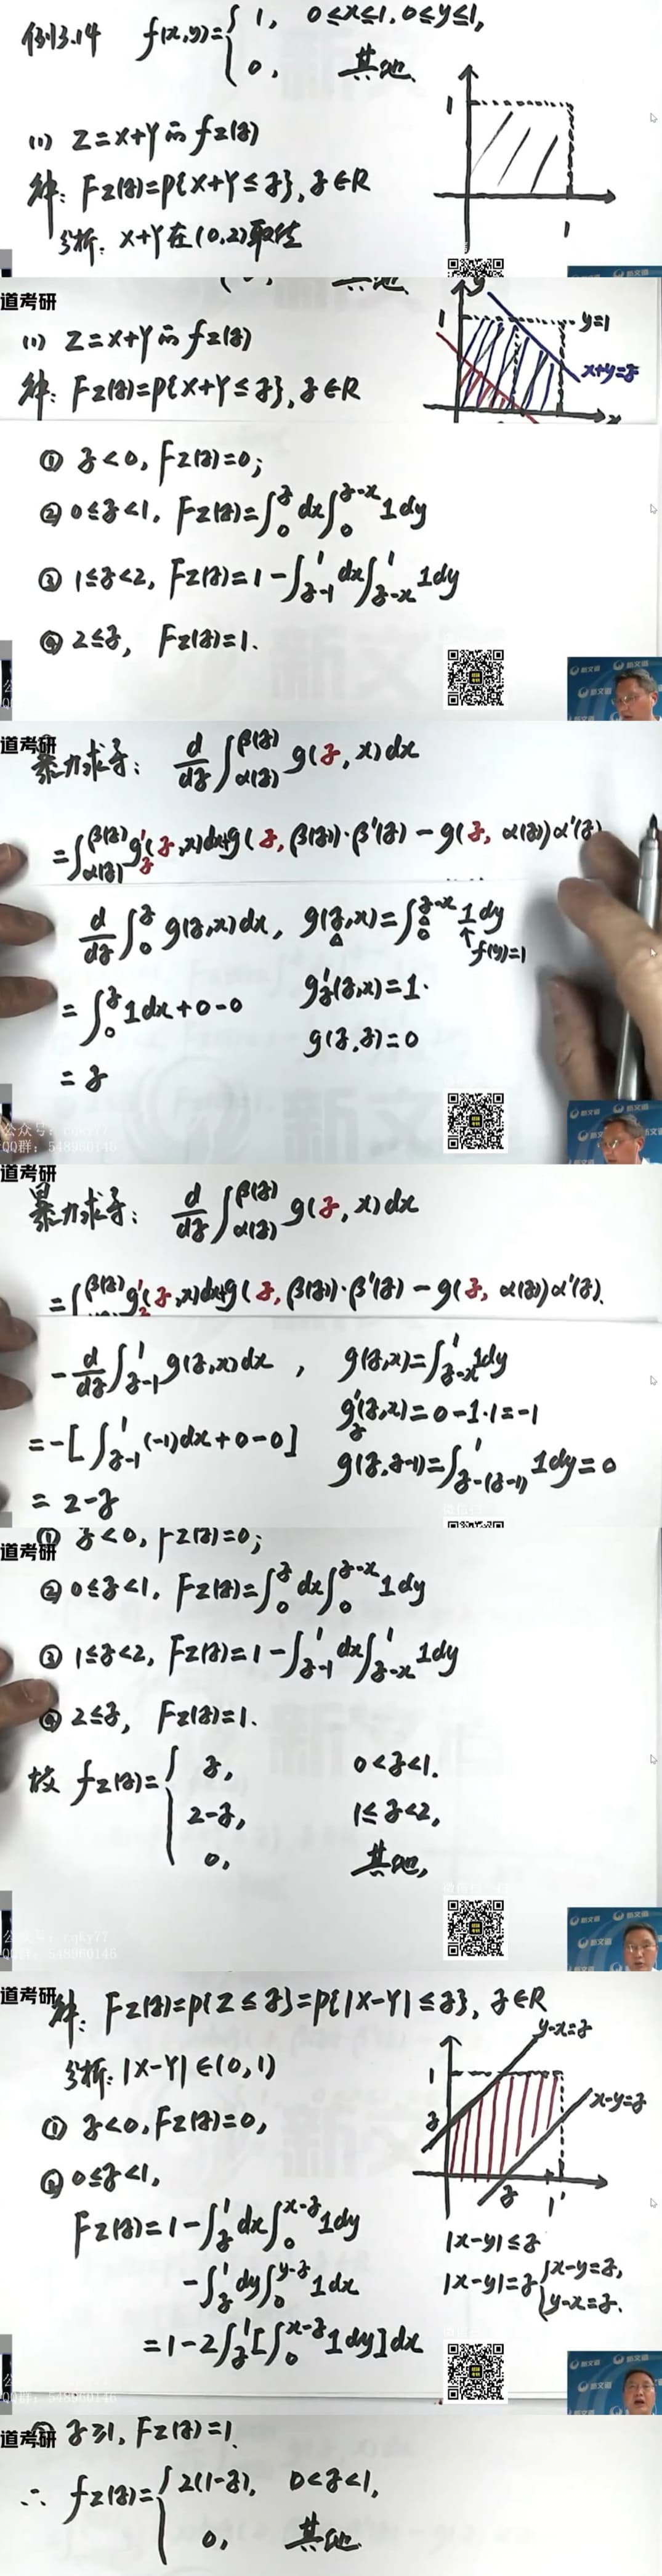 例3.14 f(x,y)={1, 0≤x≤1,0≤y≤1,
0, 其他.
(1) Z=X+Y的fz(z)
1
解: Fz(z)=P{X+Y≤z}, z∈R
分析: X+Y在(0,2)取值
1
道考研
其他.
y
(1) Z=X+Y的fz(z)
1
y=1
x+y=z
解: Fz(z)=P{X+Y≤z}, z∈R
x
① z<0, Fz(z)=0;
② 0≤z<1, Fz(z)=∫₀^z dx∫₀^{z-x} 1dy
③ 1≤z<2, Fz(z)=1-∫_{z-1}^1 dx∫_{z-x}^1 1dy
④ 2≤z, Fz(z)=1.
新文道
道考研
暴力求导: d/dz ∫_{α(z)}^{β(z)} g(z,x)dx
=∫_{α(z)}^{β(z)} g'_z(z,x)dx+g(z,β(z))·β'(z)-g(z,α(z))α'(z)
d/dz ∫₀^z g(z,x)dx, g(z,x)=∫₀^{z-x} 1dy
f(y)=1
=∫₀^z 1dx+0-0 g'_z(z,x)=1.
g(z,z)=0
=z
公众号:
QQ群: 548960146
道考研
暴力求导: d/dz ∫_{α(z)}^{β(z)} g(z,x)dx
=∫^{β(z)} g'_z(z,x)dx+g(z,β(z))·β'(z)-g(z,α(z))α'(z).
-d/dz ∫_{z-1}^1 g(z,x)dx, g(z,x)=∫_{z-x}^1 1dy
g'_z(z,x)=0-1·1=-1
=-[∫_{z-1}^1 (-1)dx+0-0]
g(z,z-1)=∫_{z-(z-1)}^1 1dy=0
=2-z
道考研
① z<0, Fz(z)=0;
② 0≤z<1, Fz(z)=∫₀^z dx∫₀^{z-x} 1dy
③ 1≤z<2, Fz(z)=1-∫_{z-1}^1 dx∫_{z-x}^1 1dy
④ 2≤z, Fz(z)=1.
故 fz(z)={z, 0<z<1.
2-z, 1≤z<2,
0, 其他,
QQ群: 548960146
道考研
解: Fz(z)=P{Z≤z}=P{|X-Y|≤z}, z∈R
y-x=z
分析: |X-Y|∈(0,1)
1
x-y=z
① z<0, Fz(z)=0,
z
② 0≤z<1,
z 1
Fz(z)=1-∫_z^1 dx∫₀^{x-z} 1dy
|x-y|≤z
-∫_z^1 dy∫₀^{y-z} 1dx
|x-y|=z {x-y=z,
y-x=z.
=1-2∫_z^1[∫₀^{x-z} 1dy]dx
QQ群: 548960146
道考研
③ z≥1, Fz(z)=1.
∴ fz(z)={2(1-z), 0<z<1,
0, 其他